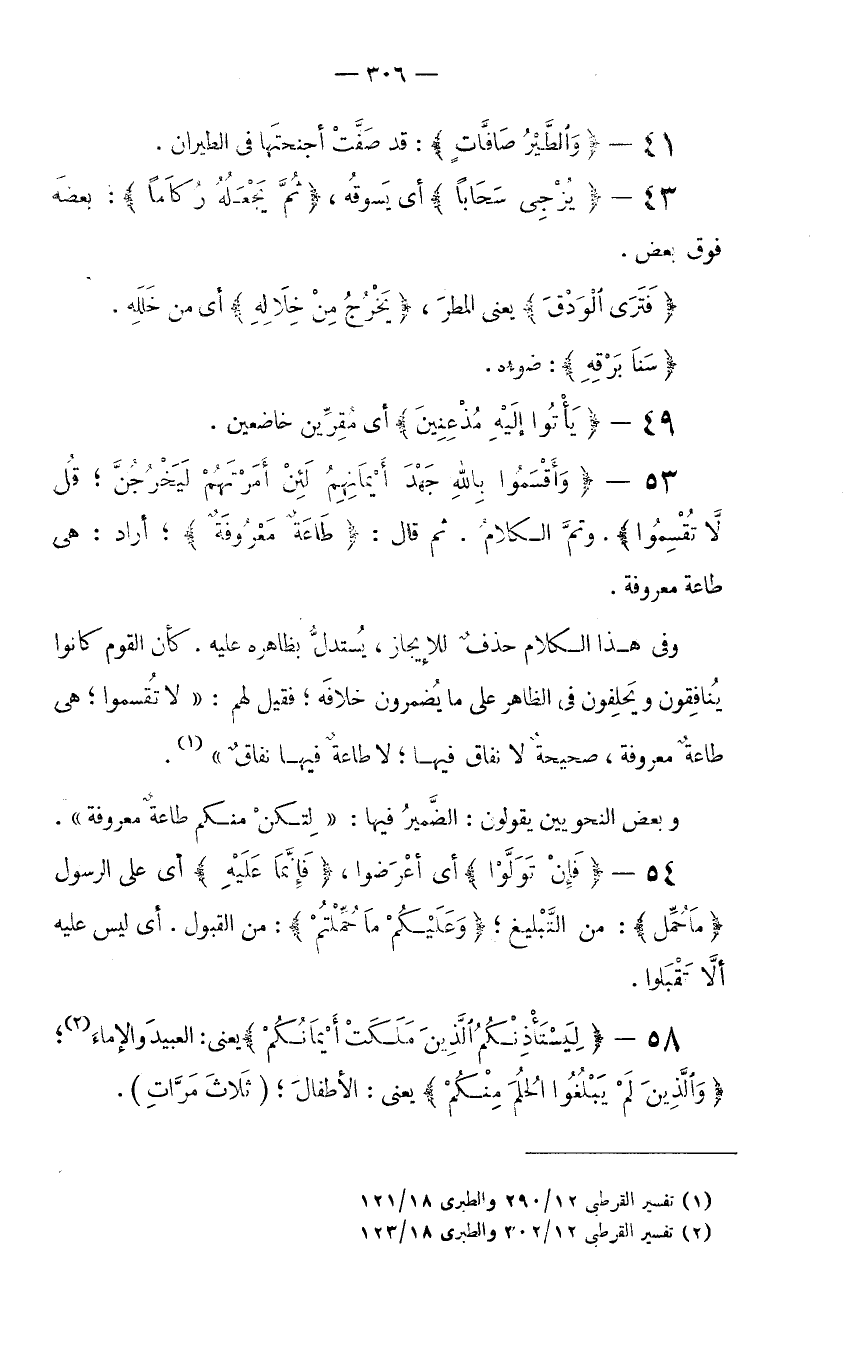 — ٣٠٦ —
٤١ — ﴿ وَٱلطَّيْرُ صَافَّاتٍ ﴾ : قد صَفَّتْ أجنحتَها فى الطيران .
٤٣ — ﴿ يُزْجِى سَحَاباً ﴾ أى يَسوقُه ، ﴿ ثُمَّ يَجْعَلُهُ رُكَاماً ﴾ : بعضَه
فوق بعض .
﴿ فَتَرَى ٱلْوَدْقَ ﴾ يعنى المطرَ ، ﴿ يَخْرُجُ مِنْ خِلَالِهِ ﴾ أى من خَلَلِه .
﴿ سَنَا بَرْقِهِ ﴾ : ضوءه .
٤٩ — ﴿ يَأْتُوا إلَيْهِ مُذْعِنِينَ ﴾ أى مُقِرِّين خاضعين .
٥٣ — ﴿ وَأَقْسَمُوا بِاللهِ جَهْدَ أَيْمَانِهِمُ لَئِنْ أَمَرْتَهُمْ لَيَخْرُجُنَّ ؛ قُل
لَّا تُقْسِمُوا ﴾ . وتمَّ الكلامُ . ثم قال : ﴿ طَاعَةٌ مَعْرُوفَةٌ ﴾ ؛ أراد : هى
طاعة معروفة .
وفى هذا الكلام حذفٌ للإيجاز ، يُستدلُّ بظاهره عليه . كأن القوم كانوا
يُنافِقون ويَحلِفون فى الظاهر على ما يُضمرون خلافَه ؛ فقيل لهم : « لا تُقسموا ؛ هى
طاعةٌ معروفة ، صحيحةٌ لا نفاق فيها ؛ لا طاعةٌ فيها نفاقٌ » (١) .
وبعض النحويين يقولون : الضَّميرُ فيها : « لِتكنْ منكم طاعةٌ معروفة » .
٥٤ — ﴿ فَإِنْ تَوَلَّوْا ﴾ أى أعْرَضوا ، ﴿ فَإِنَّمَا عَلَيْهِ ﴾ أى على الرسول
﴿ مَا حُمِّل ﴾ : من التَّبْليغ ؛ ﴿ وَعَلَيْكُمْ مَا حُمِّلْتُمْ ﴾ : من القبول . أى ليس عليه
ألَّا تَقْبَلوا .
٥٨ — ﴿ لِيَسْتَأْذِنْكُمُ ٱلَّذِينَ مَلَكَتْ أَيْمَانُكُمْ ﴾ يعنى : العبيدَ والإماءَ (٢) ؛
﴿ وَٱلَّذِينَ لَمْ يَبْلُغُوا الْحُلُمَ مِنْكُمْ ﴾ يعنى : الأطفالَ ؛ ( ثَلَاثَ مَرَّاتٍ ) .
(١) تفسير القرطبى ١٢/٢٩٠ والطبرى ١٨/١٢١
(٢) تفسير القرطبى ١٢/٣٠٢ والطبرى ١٨/١٢٣